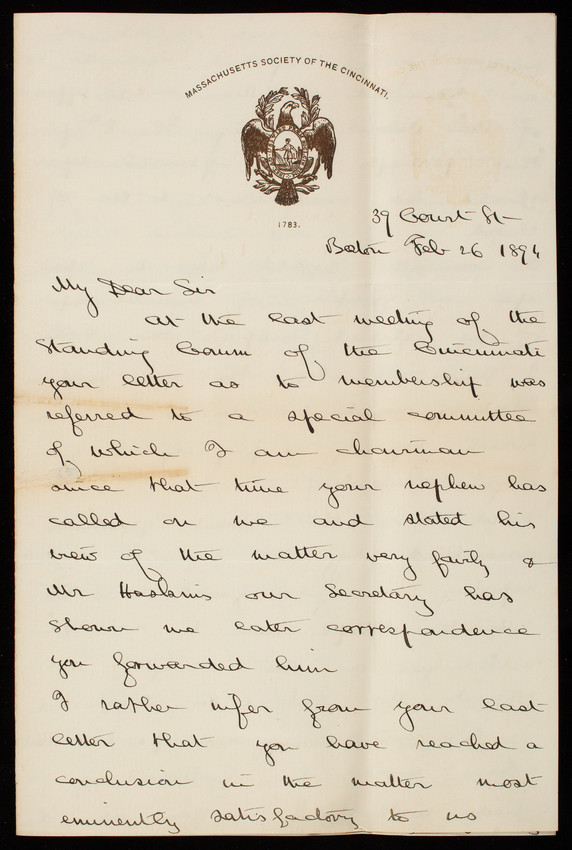 MASSACHUSETTS SOCIETY OF THE CINCINNATI.
1783.
39 Court St-
Boston Feb 26 1894
My Dear Sir
At the last meeting of the
Standing Comm of the Cincinnati
your letter as to membership was
referred to a special committee
of which I am chairman
since that time your nephew has
called on me and stated his
view of the matter very fairly &
Mr Haskins our Secretary has
shown me later correspondence
you forwarded him
I rather infer from your last
letter that you have reached a
conclusion in the matter most
eminently satisfactory to us